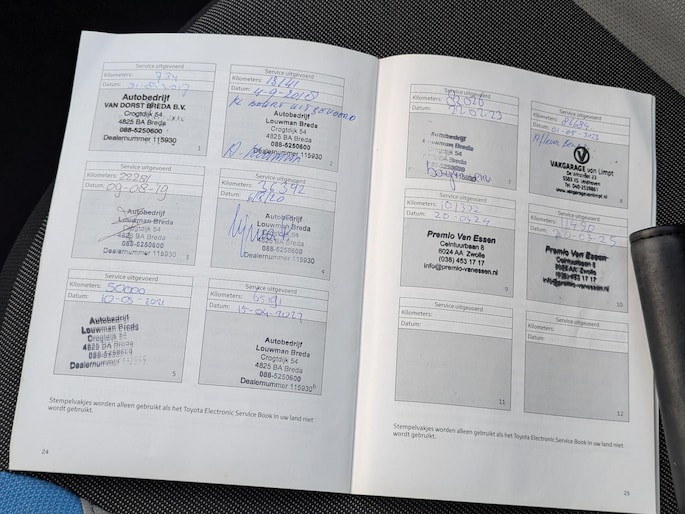 Service uitgevoerd
Kilometers:
Datum:
Autobedrijf
VAN DORST BREDA B.V.
Crogtdijk 54
4825 BA Breda
088-5250600
Dealernummer 115930
1
Service uitgevoerd
Kilometers: 13141
Datum: 4-9-2018
Autobedrijf
Louwman Breda
Crogtdijk 54
4825 BA Breda
088-5250600
Dealernummer 115930
2
Service uitgevoerd
Kilometers: 22281
Datum: 09-08-19
Autobedrijf
Louwman Breda
Crogtdijk 54
4825 BA Breda
088-5250600
Dealernummer 115930
3
Service uitgevoerd
Kilometers: 36392
Datum:
Autobedrijf
Louwman Breda
Crogtdijk 54
4825 BA Breda
088-5250600
Dealernummer 115930
4
Service uitgevoerd
Kilometers: 50000
Datum: 10-05-2021
Autobedrijf
Louwman Breda
Crogtdijk 54
4825 BA Breda
088-5250600
Dealernummer 115930
5
Service uitgevoerd
Kilometers: 65191
Datum: 15-04-2022
Autobedrijf
Louwman Breda
Crogtdijk 54
4825 BA Breda
088-5250600
Dealernummer 115930
6
Stempelvakjes worden alleen gebruikt als het Toyota Electronic Service Book in uw land niet
wordt gebruikt.
24
Service uitgevoerd
Kilometers:
Datum:
7
Service uitgevoerd
Kilometers:
Datum:
VAKGARAGE van Limpt
8
Service uitgevoerd
Kilometers:
Datum: 20-03-24
Premio Van Essen
Ceintuurbaan 8
8024 AA Zwolle
(038) 453 17 17
info@premio-vanessen.nl
9
Service uitgevoerd
Kilometers:
Datum:
Premio Van Essen
Ceintuurbaan 8
8024 AA Zwolle
(038) 453 17 17
info@premio-vanessen.nl
10
Service uitgevoerd
Kilometers:
Datum:
11
Service uitgevoerd
Kilometers:
Datum:
12
Stempelvakjes worden alleen gebruikt als het Toyota Electronic Service Book in uw land niet
wordt gebruikt.
25